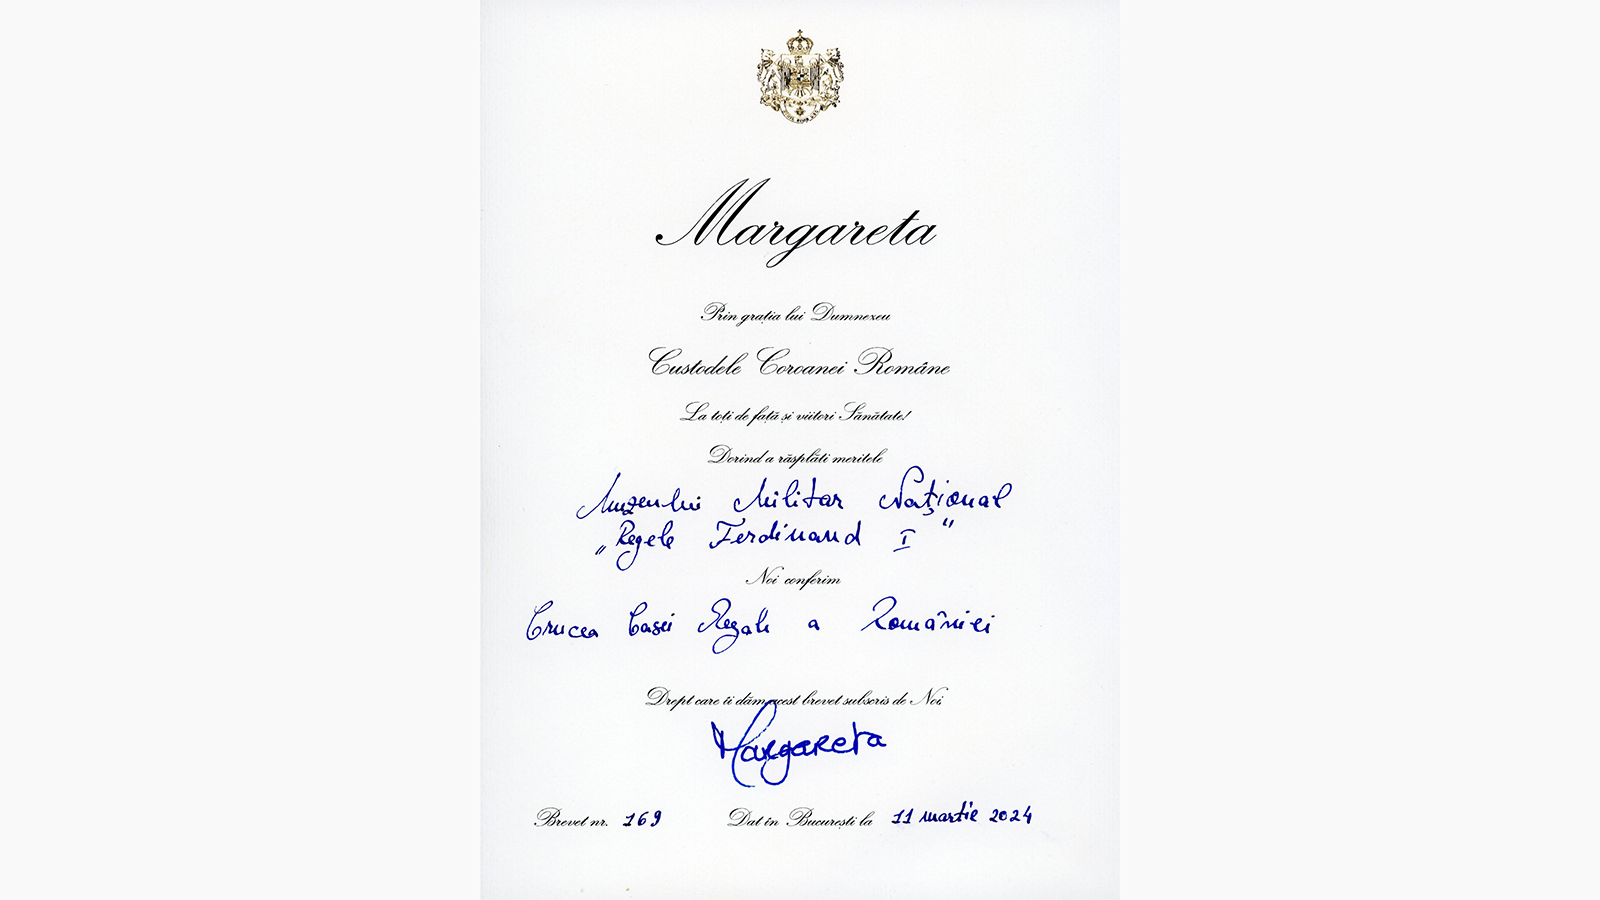 Margareta
Prin grația lui Dumnezeu
Custodele Coroanei Române
La toți de față și viitori Sănătate!
Dorind a răsplăti meritele
Muzeului Militar Național
„Regele Ferdinand I"
Noi conferim
Crucea Casei Regale a României
Drept care îi dăm acest brevet subscris de Noi,
Margareta
Brevet nr. 169 Dat în București la 11 martie 2024